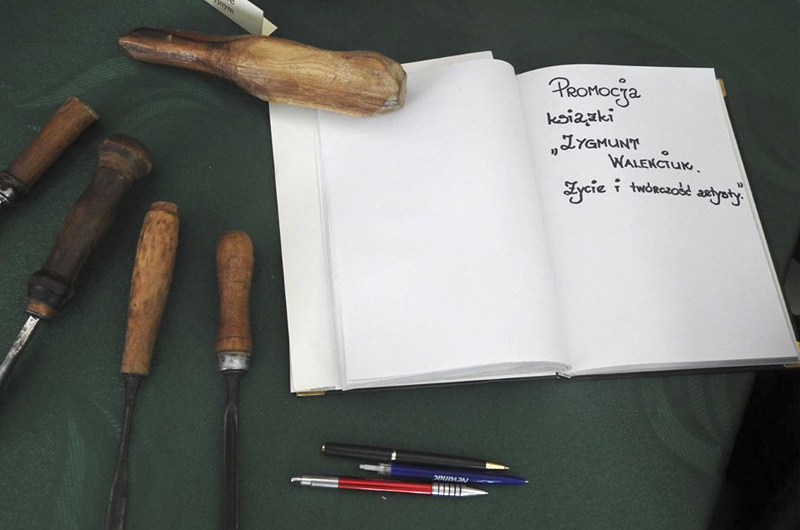 Promocja
książki
„Zygmunt
Walenciuk.
Życie i twórczość artysty."